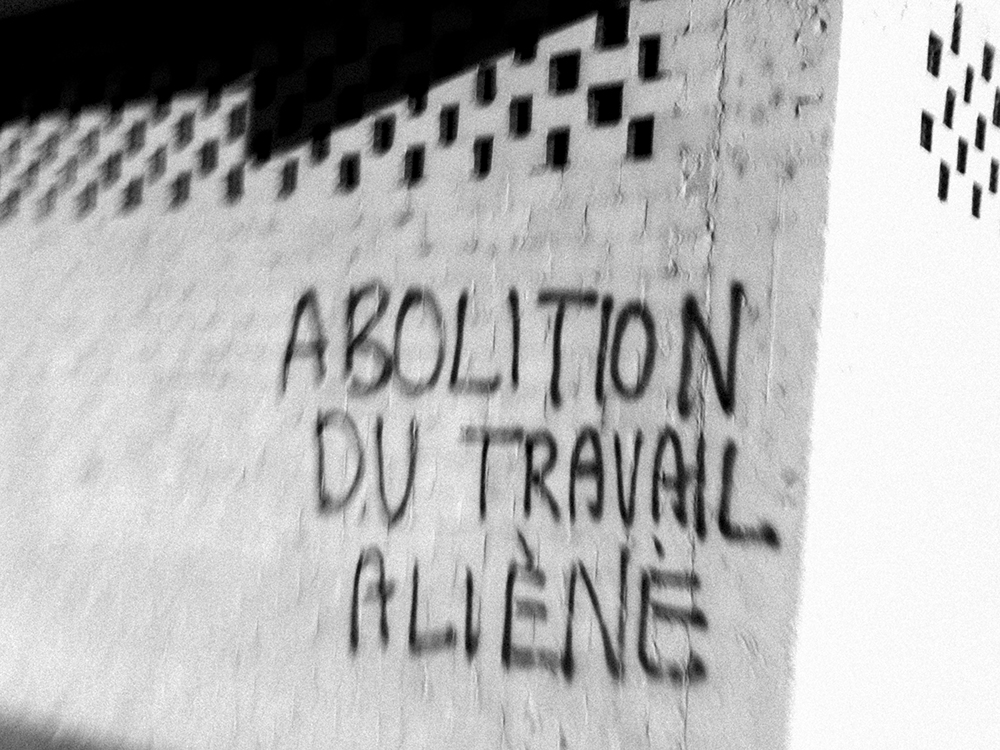 ABOLITION
DU TRAVAIL
ALIÈNÉ